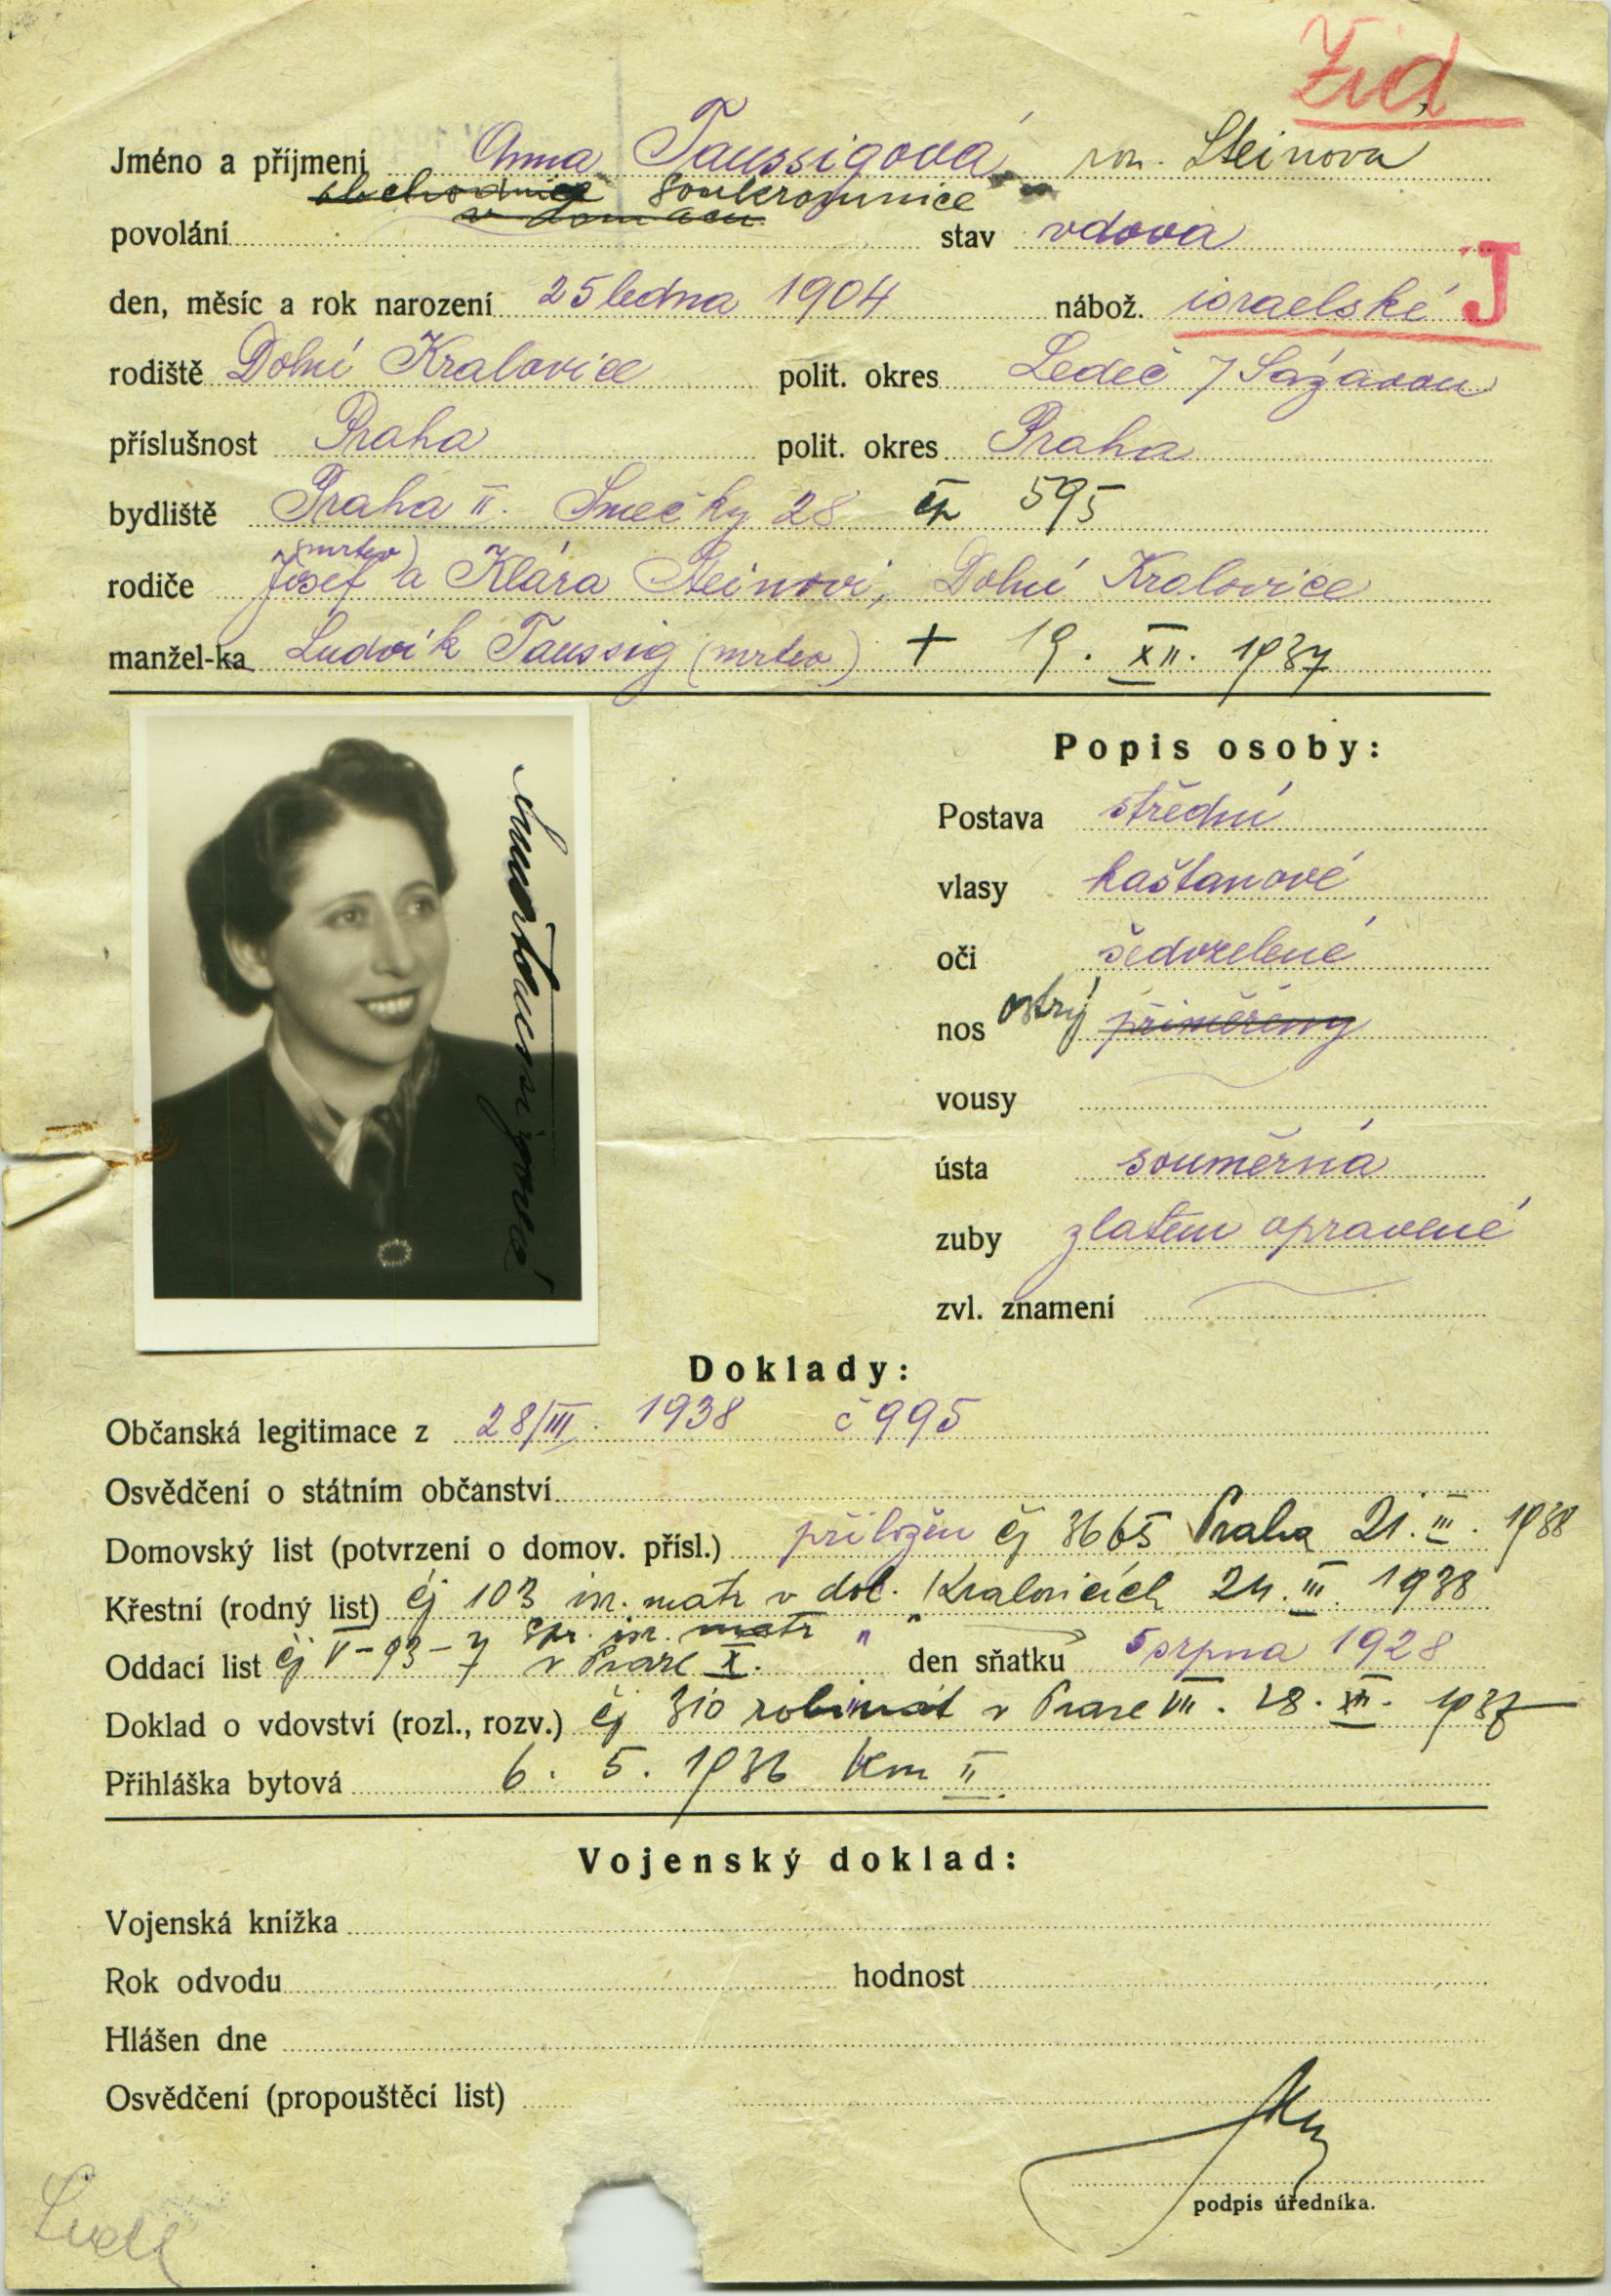 Žid
Jméno a příjmení Anna Taussigová roz. Steinova
obchodnice soukromnice
v domácn.
povolání stav vdova
den, měsíc a rok narození 25 ledna 1904 nábož. israelské J
rodiště Dolní Kralovice polit. okres Ledeč / Sázavou
příslušnost Praha polit. okres Praha
bydliště Praha II. Smečky 28 čp 595
(mrtev)
rodiče Josef a Klára Steinovi, Dolní Kralovice
manžel-ka Ludvík Taussig (mrtev) + 19. XII. 1937
Anna Taussigová
Popis osoby:
Postava střední
vlasy kaštanové
oči šedozelené
nos ostrý přiměřený
vousy
ústa souměrná
zuby zlatem opravené
zvl. znamení
Doklady:
Občanská legitimace z 28/III. 1938 č 995
Osvědčení o státním občanství
Domovský list (potvrzení o domov. přísl.) přiložen čj 3665 Praha 21. III. 1938
Křestní (rodný list) čj 103 isr. matr v dol. Kralovicích 24. III. 1938
Spr. isr. matr " "
Oddací list čj V-93-7 v Praze X. den sňatku 5 srpna 1928
Doklad o vdovství (rozl., rozv.) čj 310 rabinát v Praze VII. 28. XII. 1937
Přihláška bytová 6. 5. 1936 Km II
Vojenský doklad:
Vojenská knížka
Rok odvodu hodnost
Hlášen dne
Osvědčení (propouštěcí list)
podpis úředníka.